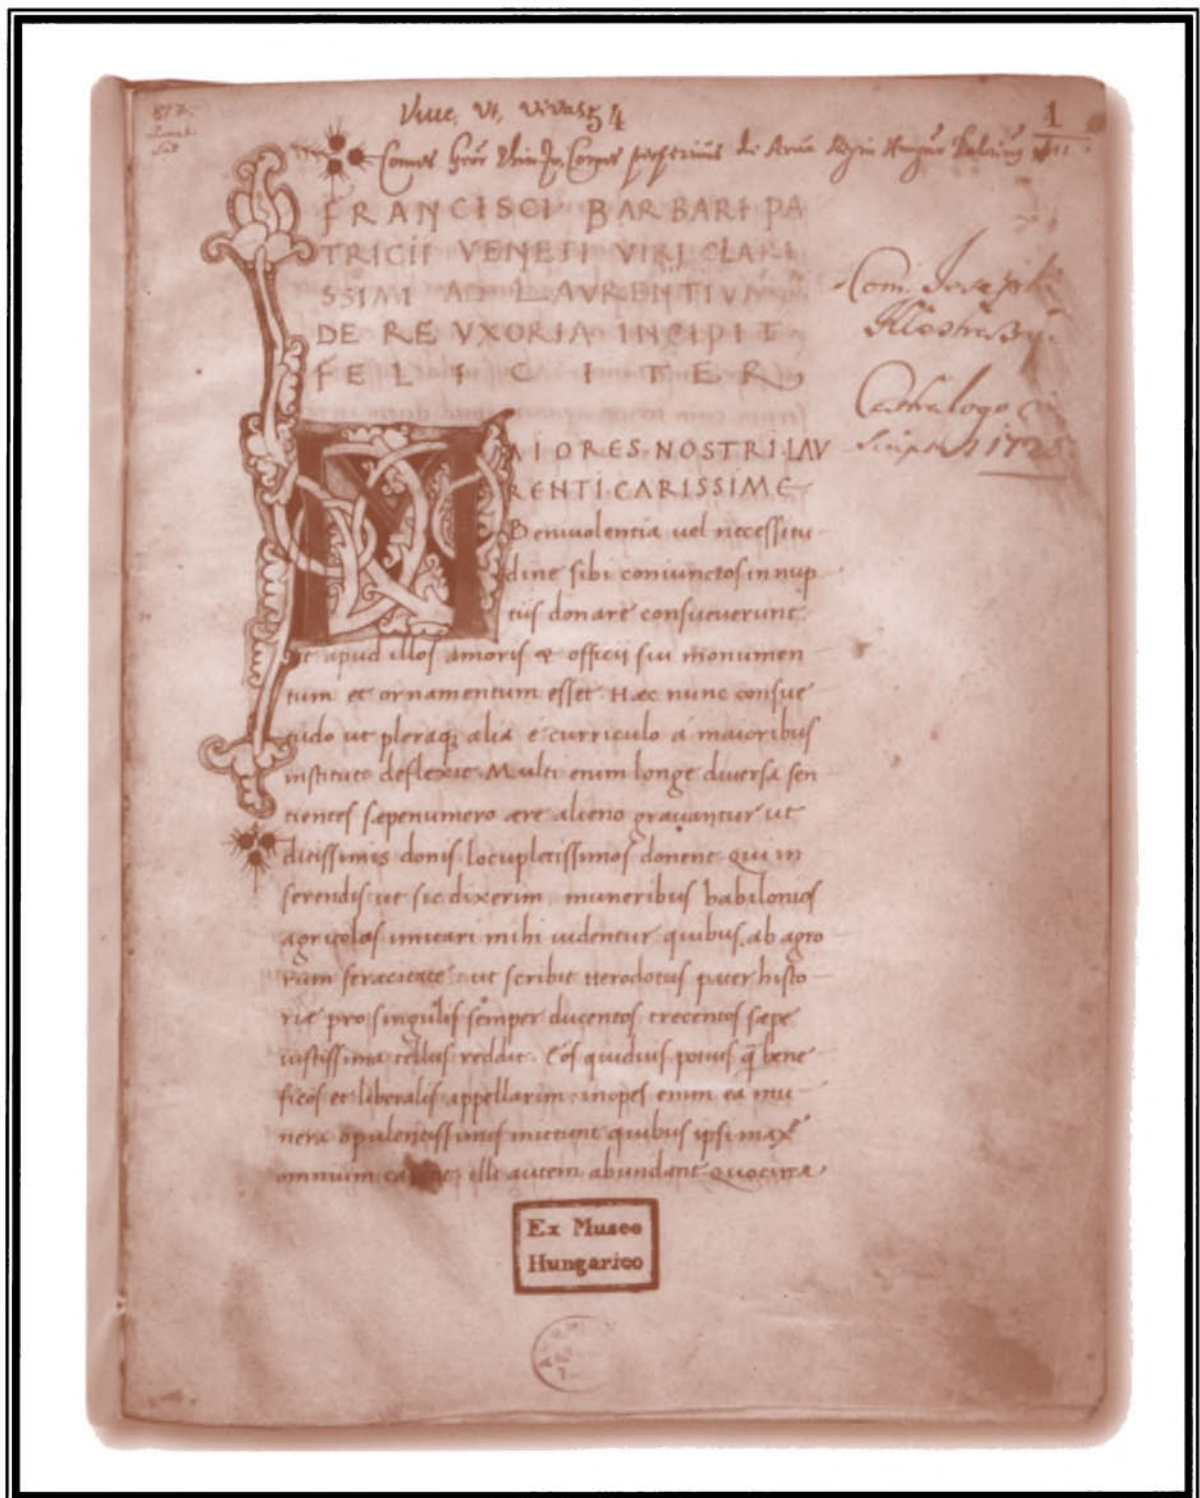 Viue, Vt, vivas 54
1
FRANCISCI BARBARI PA
TRICII VENETI VIRI CLARI
SSIMI AD LAVRENTIVM
DE RE VXORIA INCIPIT
FELICITER
Com. Josephi
1725
MAIORES NOSTRI LAV
RENTI CARISSIME
Beniuolentia uel necessitu
dine sibi coniunctos in nup
tiis donare consueuerunt
ut apud illos amoris & officii sui monumen
tum et ornamentum esset. Hæc nunc consue
tudo ut pleraq; alia e curriculo á maioribus
instituto deflexit. Multi enim longe diuersa sen
tientes sæpenumero ære alieno grauantur ut
ditissimis donis locupletissimos donent. Qui in
serendis ut sic dixerim muneribus babilonios
agricolas imitari mihi uidentur quibus ab agro
rum feracitate ut scribit Herodotus pater histo
riæ pro singulis semper ducentos trecentos sæpe
iustissima tellus reddit. Eos quiduis potius q̃ bene
ficos et liberalis appellarim inopes enim ea mu
nera opulentissimis mittunt quibus ipsi max̃e
omnium illi autem abundant. Quocirca
Ex Museo
Hungarico